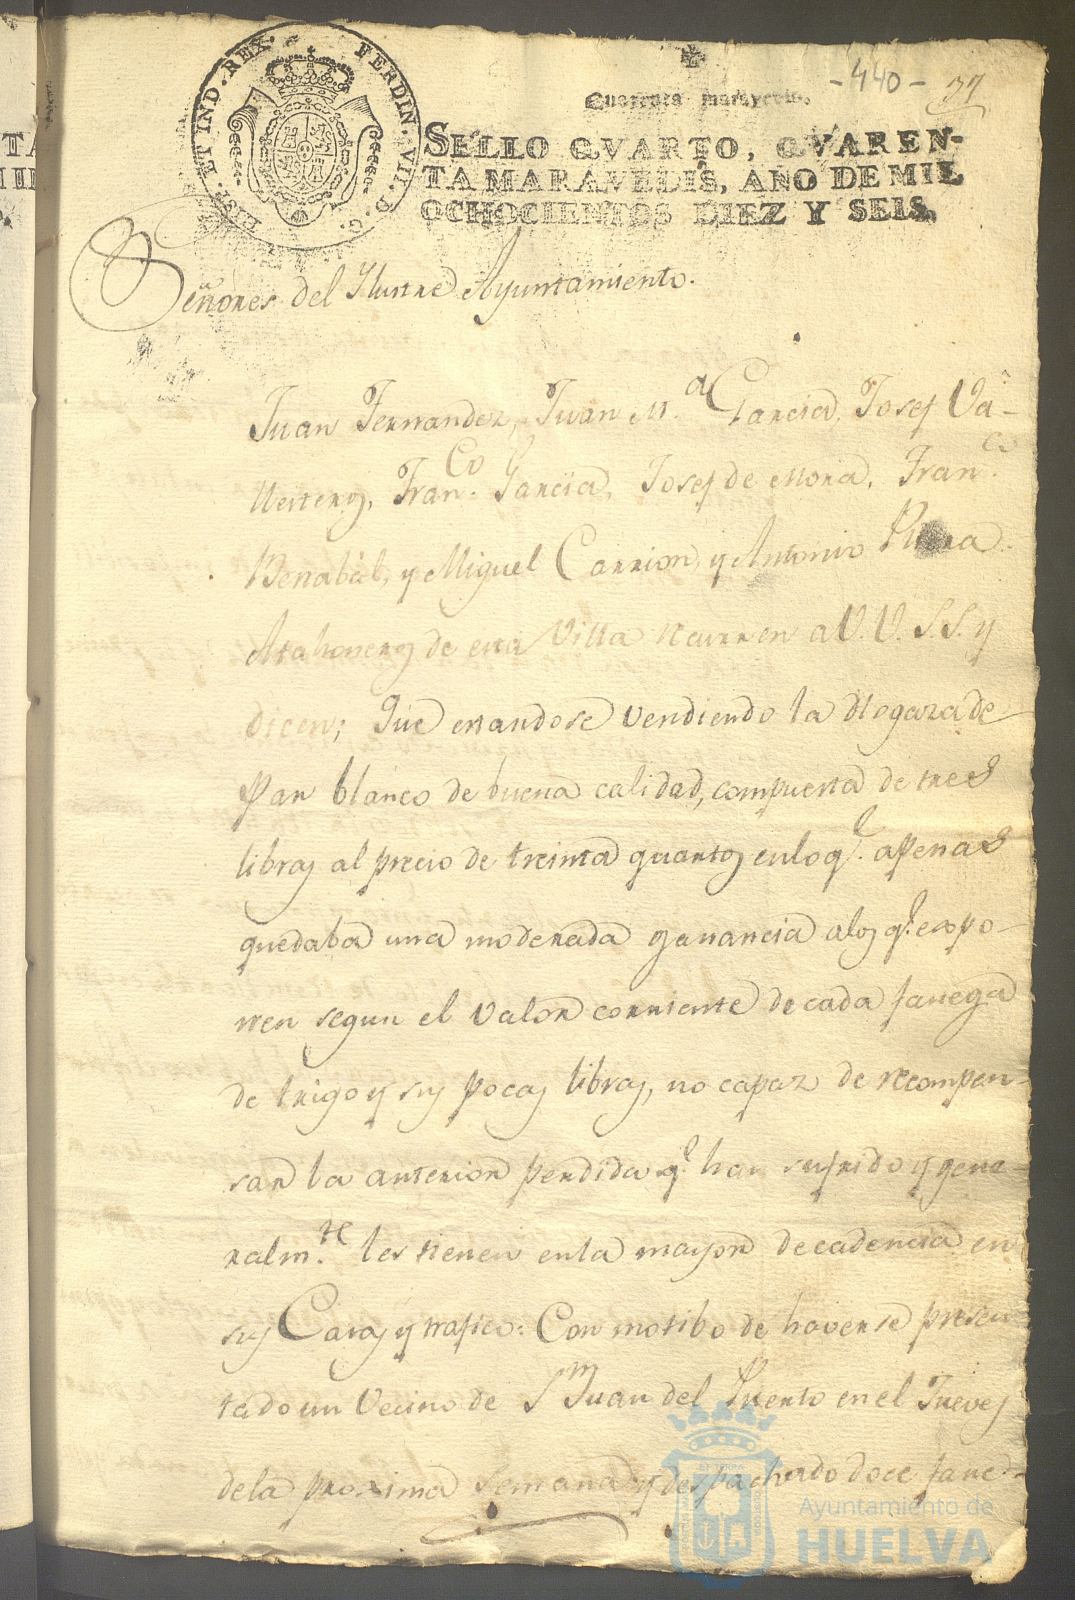 -440- 37
Quarenta maravedis.
SELLO QVARTO, QVAREN-
TA MARAVEDIS, AÑO DE MIL
OCHOCIENTOS DIEZ Y SEIS.
FERDIN. VII. D. G. HISP. ET IND. REX.
Señores del Ylustre Ayuntamiento.
Juan Fernandez, Juan M.a Garcia, Josef Va-
llesteros, Fran.co Garcia, Josef de Mora, Fran.co
Benabàl, y Miguel Carrion, y Antonio
Atahoneros de esta Villa recurren a V.V. S.S. y
dicen; Que estandose vendiendo la Hogaza de
Pan blanco de buena calidad, compuesta de tres
libras al precio de treinta quartos en lo q.e apenas
quedaba una moderada ganancia a los q.e expo-
nen segun el valor corriente de cada fanega
de trigo y sus pocas libras, no capaz de recompen-
sar la anterior perdida q.e han sufrido y gene-
ralm.te les tienen en la mayor decadencia en
sus Casas y trafico: Con motibo de haverse presen-
tado un Vecino de S.n Juan del Puerto en el Jueves
de la proxima semana y despachado doce fane-
Ayuntamiento de
HUELVA